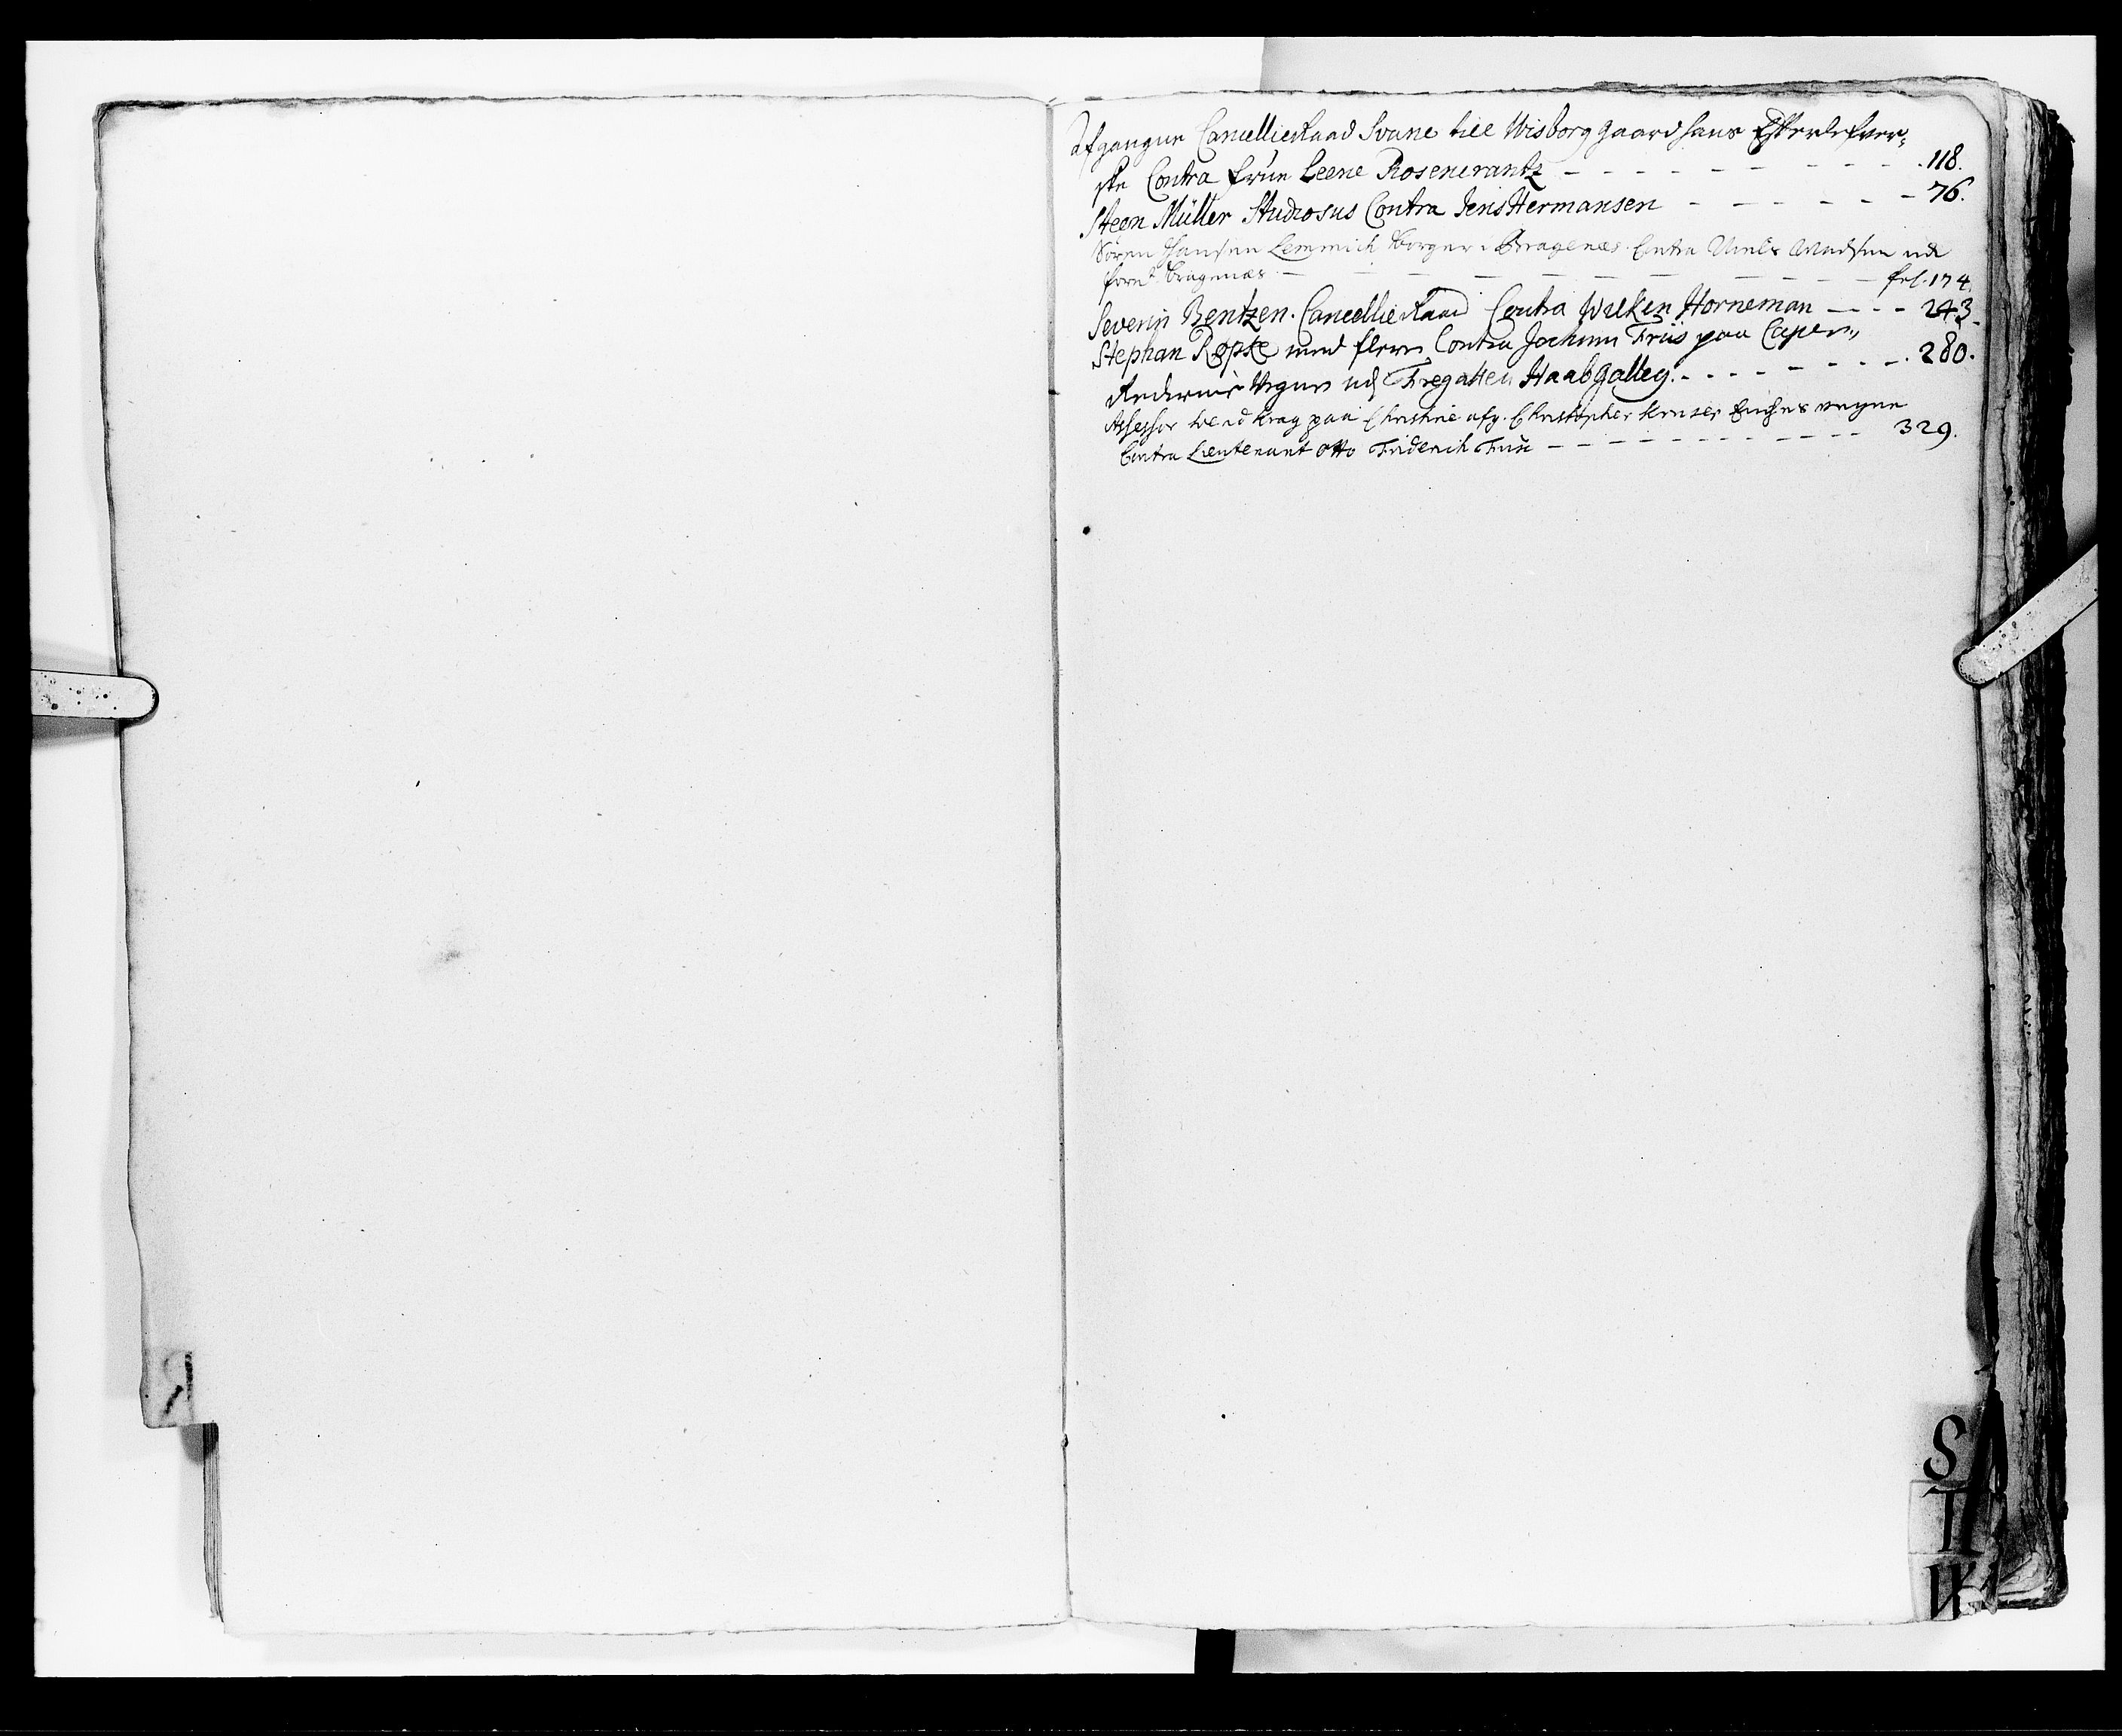 Afgangne CancellieRaad Svane till Wisborg gaard hans Efterlefver-
ske Contra frue Leene Rosencrantz - - - - - - - - 118.
Steen Müller Studiosus Contra Jens Hermansen - - - - - - 76.
Søren Hansen Lemmich borger i Bragenæs Contra Niels Madsen ved
forn: Bragenæs - - - - - - - - - fol. 174.
Severin Bentzen. CancellieRaad Contra Wilken Horneman - - - - 243.
Stephan Røpke med flere Contra Jochum Friis paa Caper-
Redernis Vegne ved Fregatten Haab Galley. - - - - - - - - 280.
Assessor Krag paa Christine afg. Christopher Kruses vegne
Contra Lieutenant Otto Friderich Friis - - - - - - - - - - - 329.
R
S
T
W